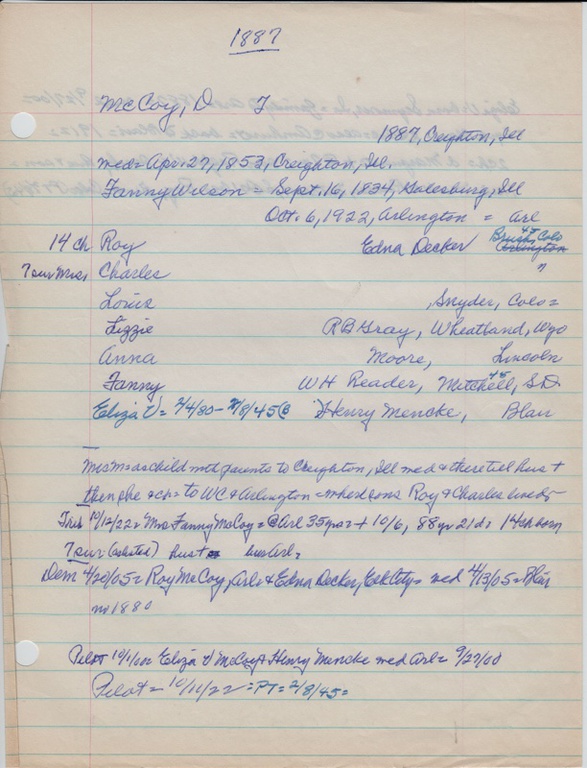 1887
McCoy, D T
1887, Creighton, Ill
med = Apr. 27, 1853, Creighton, Ill.
Fanny Wilson = Sept. 16, 1834, Galesburg, Ill
Oct. 6, 1922, Arlington = Arl
14 ch Roy Edna Decker Brush, Colo
7 sur Mrs Charles "
Louis Snyder, Colo =
Lizzie RB Gray, Wheatland, Wyo
Anna Moore, Lincoln
Fanny WH Reader, Mitchell, SD
45
Eliza V = 2/4/80 - 2/8/45 Henry Mencke, Blair
Mrs M = as child with parents to Creighton, Ill med & there til hus +
then she & ch = to WC & Arlington = where sons Roy & Charles lived -
Trib 10/12/22 = Mrs Fanny McCoy = @ Arl 35 yrs = + 10/6, 88 yr 21 d = 14 ch born
7 sur (as listed) hus + bu Arl =
Dem 4/20/05 = Roy McCoy, Arl = & Edna Decker, Elk City = med 4/13/05 = Blair
1880
Pilot 10/1/00 = Eliza V McCoy & Henry Mencke med Arl = 9/27/00
Pilot = 10/11/22 = PT = 2/8/45 =